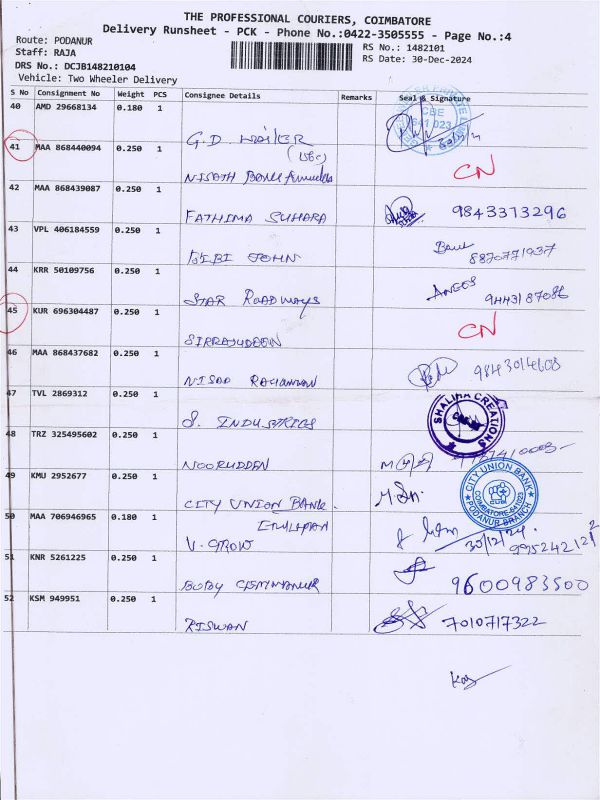 THE PROFESSIONAL COURIERS, COIMBATORE
Delivery Runsheet - PCK - Phone No.:0422-3505555 - Page No.:4
Route: PODANUR
Staff: RAJA
RS No.: 1482101
DRS No.: DCJB148210104
RS Date: 30-Dec-2024
Vehicle: Two Wheeler Delivery
S No Consignment No Weight PCS Consignee Details Remarks Seal & Signature
40 AMD 29668134 0.180 1 G.D. CBE 641 023
41 MAA 868440094 0.250 1 NISATH BANU CN
42 MAA 868439087 0.250 1 FATHIMA SUHARA 9843373296
43 VPL 406184559 0.250 1 BIBI JOHN 8870771937
44 KRR 50109756 0.250 1 STAR ROADWAYS 9443187086
45 KUR 696304487 0.250 1 SIRRAJUDDEEN CN
46 MAA 868437682 0.250 1 NISAD RAHUMAN 9843014608
47 TVL 2869312 0.250 1 S. INDUSTRIES SHALIMA CREATIONS
48 TRZ 325495602 0.250 1 NOORUDDEN
49 KMU 2952677 0.250 1 CITY UNION BANK CITY UNION BANK COIMBATORE-641 023 PODANUR BRANCH CUB
50 MAA 706946965 0.180 1 V. GROW 30/12/24 9952421212
51 KNR 5261225 0.250 1 BOBY CEMMANUR 9600983500
52 KSM 949951 0.250 1 RISWAN 7010717322